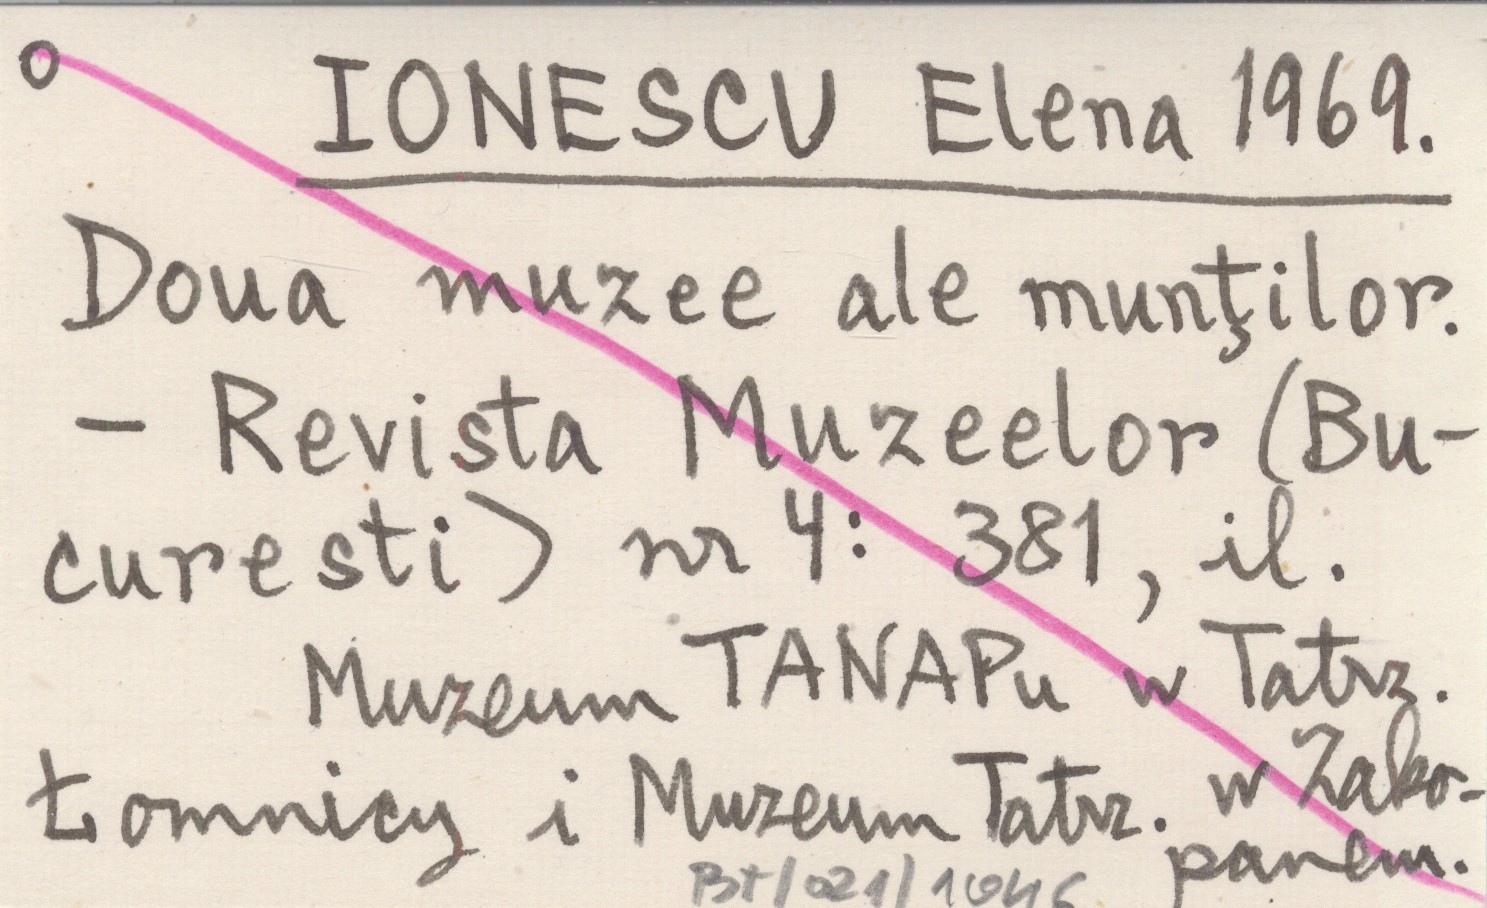 IONESCU Elena 1969.
Doua muzee ale munţilor.
- Revista Muzeelor (Bu-
curesti) nr 4: 381, il.
Muzeum TANAPu w Tatrz.
Łomnicy i Muzeum Tatrz. w Zako-
panem.
Bt/021/1046